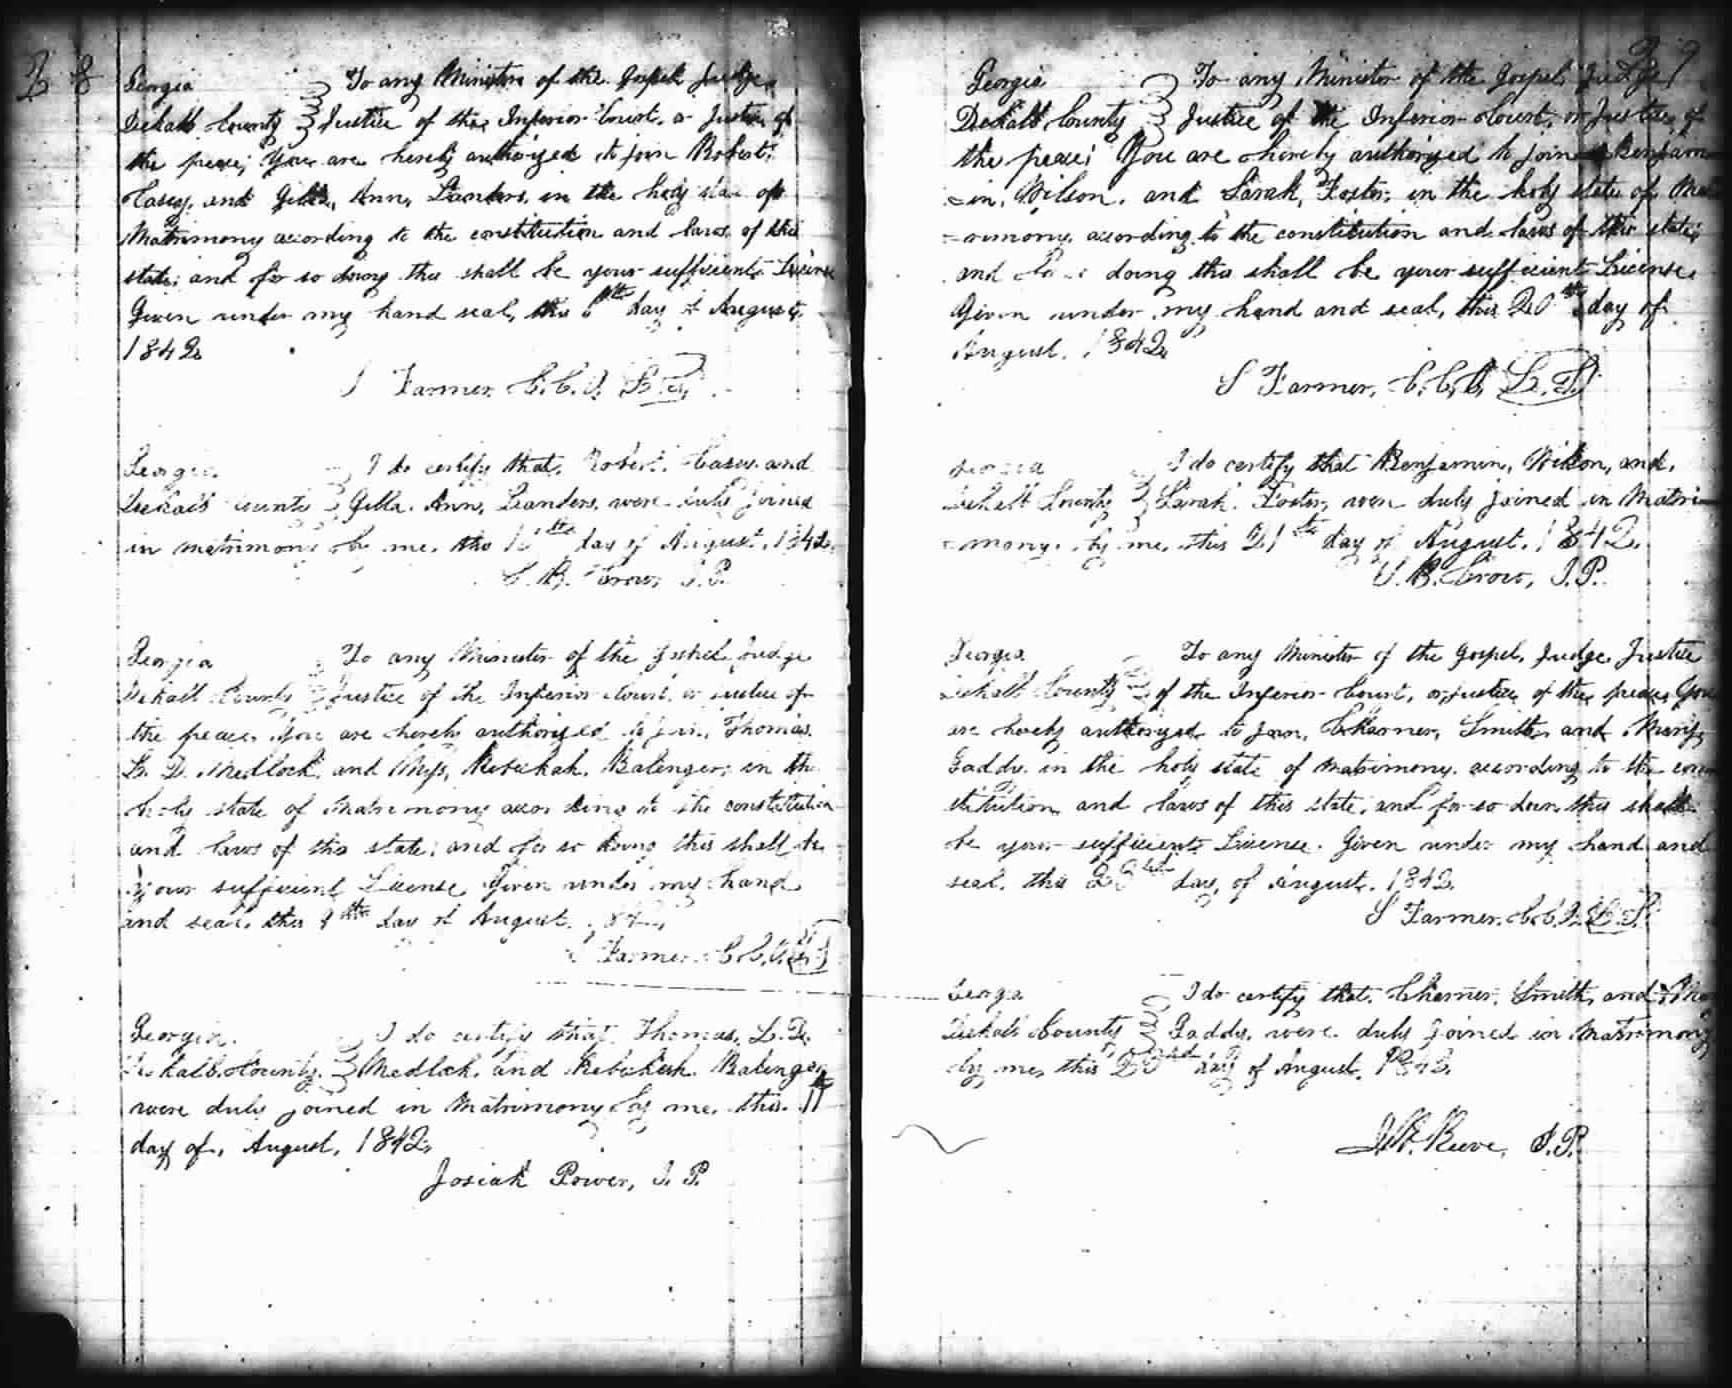 28
Georgia To any Minister of the Gospel Judge
Dekalb County Justice of the Inferior Court, or Justice of
the peace; You are hereby authorized to join Robert,
Casey, and Gilla, Ann, Landers, in the holy state of
Matrimony according to the constitution and laws of this
state; and for so doing this shall be your sufficient License
Given under my hand seal, this 6th day of August,
1842
Farmer, C.C.O. L.S.
Georgia I do certify that, Robert, Casey and
Dekalb County Gilla, Ann, Landers, were duly joined
in matrimony by me, this day of August, 1842.
C. B. Crow, J.P.
Georgia To any Minister of the Gospel Judge
Dekalb County Justice of the Inferior Court, or justice of
the peace, You are hereby authorized to join, Thomas,
L. D. Medlock, and Miss, Rebekah, Balenger, in the
holy state of Matrimony according to the constitution
and laws of this state; and for so doing this shall be
your sufficient License Given under my hand
and seal, this 9th day of August, 1842,
S Farmer C.C.O. L.S
Georgia. I do certify that, Thomas, L. D.
Dekalb County. Medlock, and Rebekah Balenger
were duly joined in Matrimony by me, this 11th
day of, August, 1842,
Josiah Power, J. P.
29
Georgia To any Minister of the Gospel Judge
Dekalb County Justice of the Inferior Court, or Justice of
the peace; You are hereby authorized to join Benjam
-in, Wilson, and Sarah, Foster, in the holy state of Mat
-rimony, according to the constitution and laws of this state,
and doing this shall be your sufficient License,
Given under my hand and seal, this 20th day of
August, 1842,
S Farmer, C.C.O. L. S.
Georgia I do certify that Benjamin, Wilson, and,
Dekalb County Sarah, Foster, were duly joined in Matri
-mony, by me, this 21th day of August, 1842.
C. B. Crow, J.P.
Georgia To any Minister of the Gospel, Judge, Justice
Dekalb County of the Inferior Court, or justice of the peace, You
are hereby authorized to join, Charner, Smith, and Mary,
Gaddy, in the holy state of matrimony, according to the con
stitution and laws of this state, and for so doin this shall
be your sufficient License. Given under my hand and
seal, this day, of August, 1842.
S Farmer, C.C.O. L. S.
Georga I do certify that, Charner, Smith, and Ma
Dekalb County Gaddy, were duly joined in Matrimony
by me, this day of August, 1842.
Reeve, J.P.